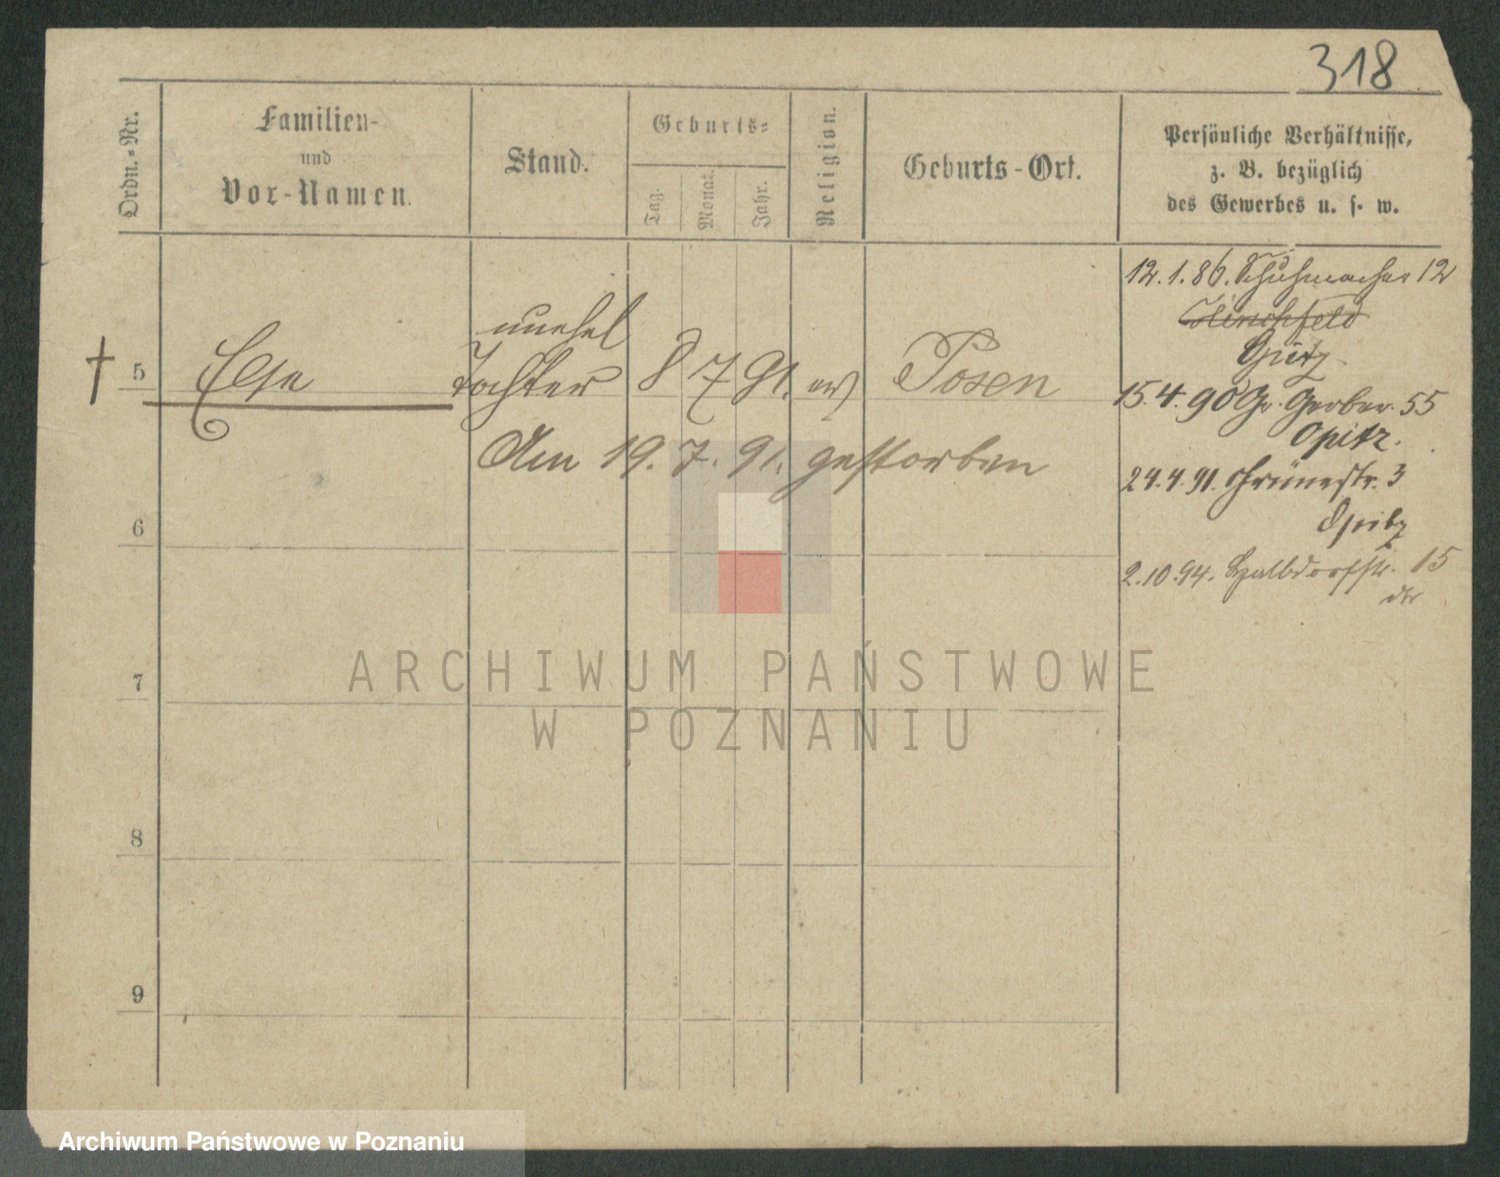 318
Ordn.-Nr.
Familien-
und
Vor-Namen.
Stand.
Geburts-
Tag.
Monat.
Jahr.
Religion.
Geburts-Ort.
Persönliche Verhältnisse,
z. B. bezüglich
des Gewerbes u. s. w.
12.1.86. Schuhmacher 12
Hirschfeld
unehel
† 5 Else Tochter 8 7 91. ev Posen
15.4.90 Gr. Gerber. 55
Opitz.
Am 19. 7. 91. gestorben
24.4.91. Grünestr. 3
Opitz
6
2.10.94. Halbdorfstr. 15
7
8
9
ARCHIWUM PAŃSTWOWE
W POZNANIU
Archiwum Państwowe w Poznaniu